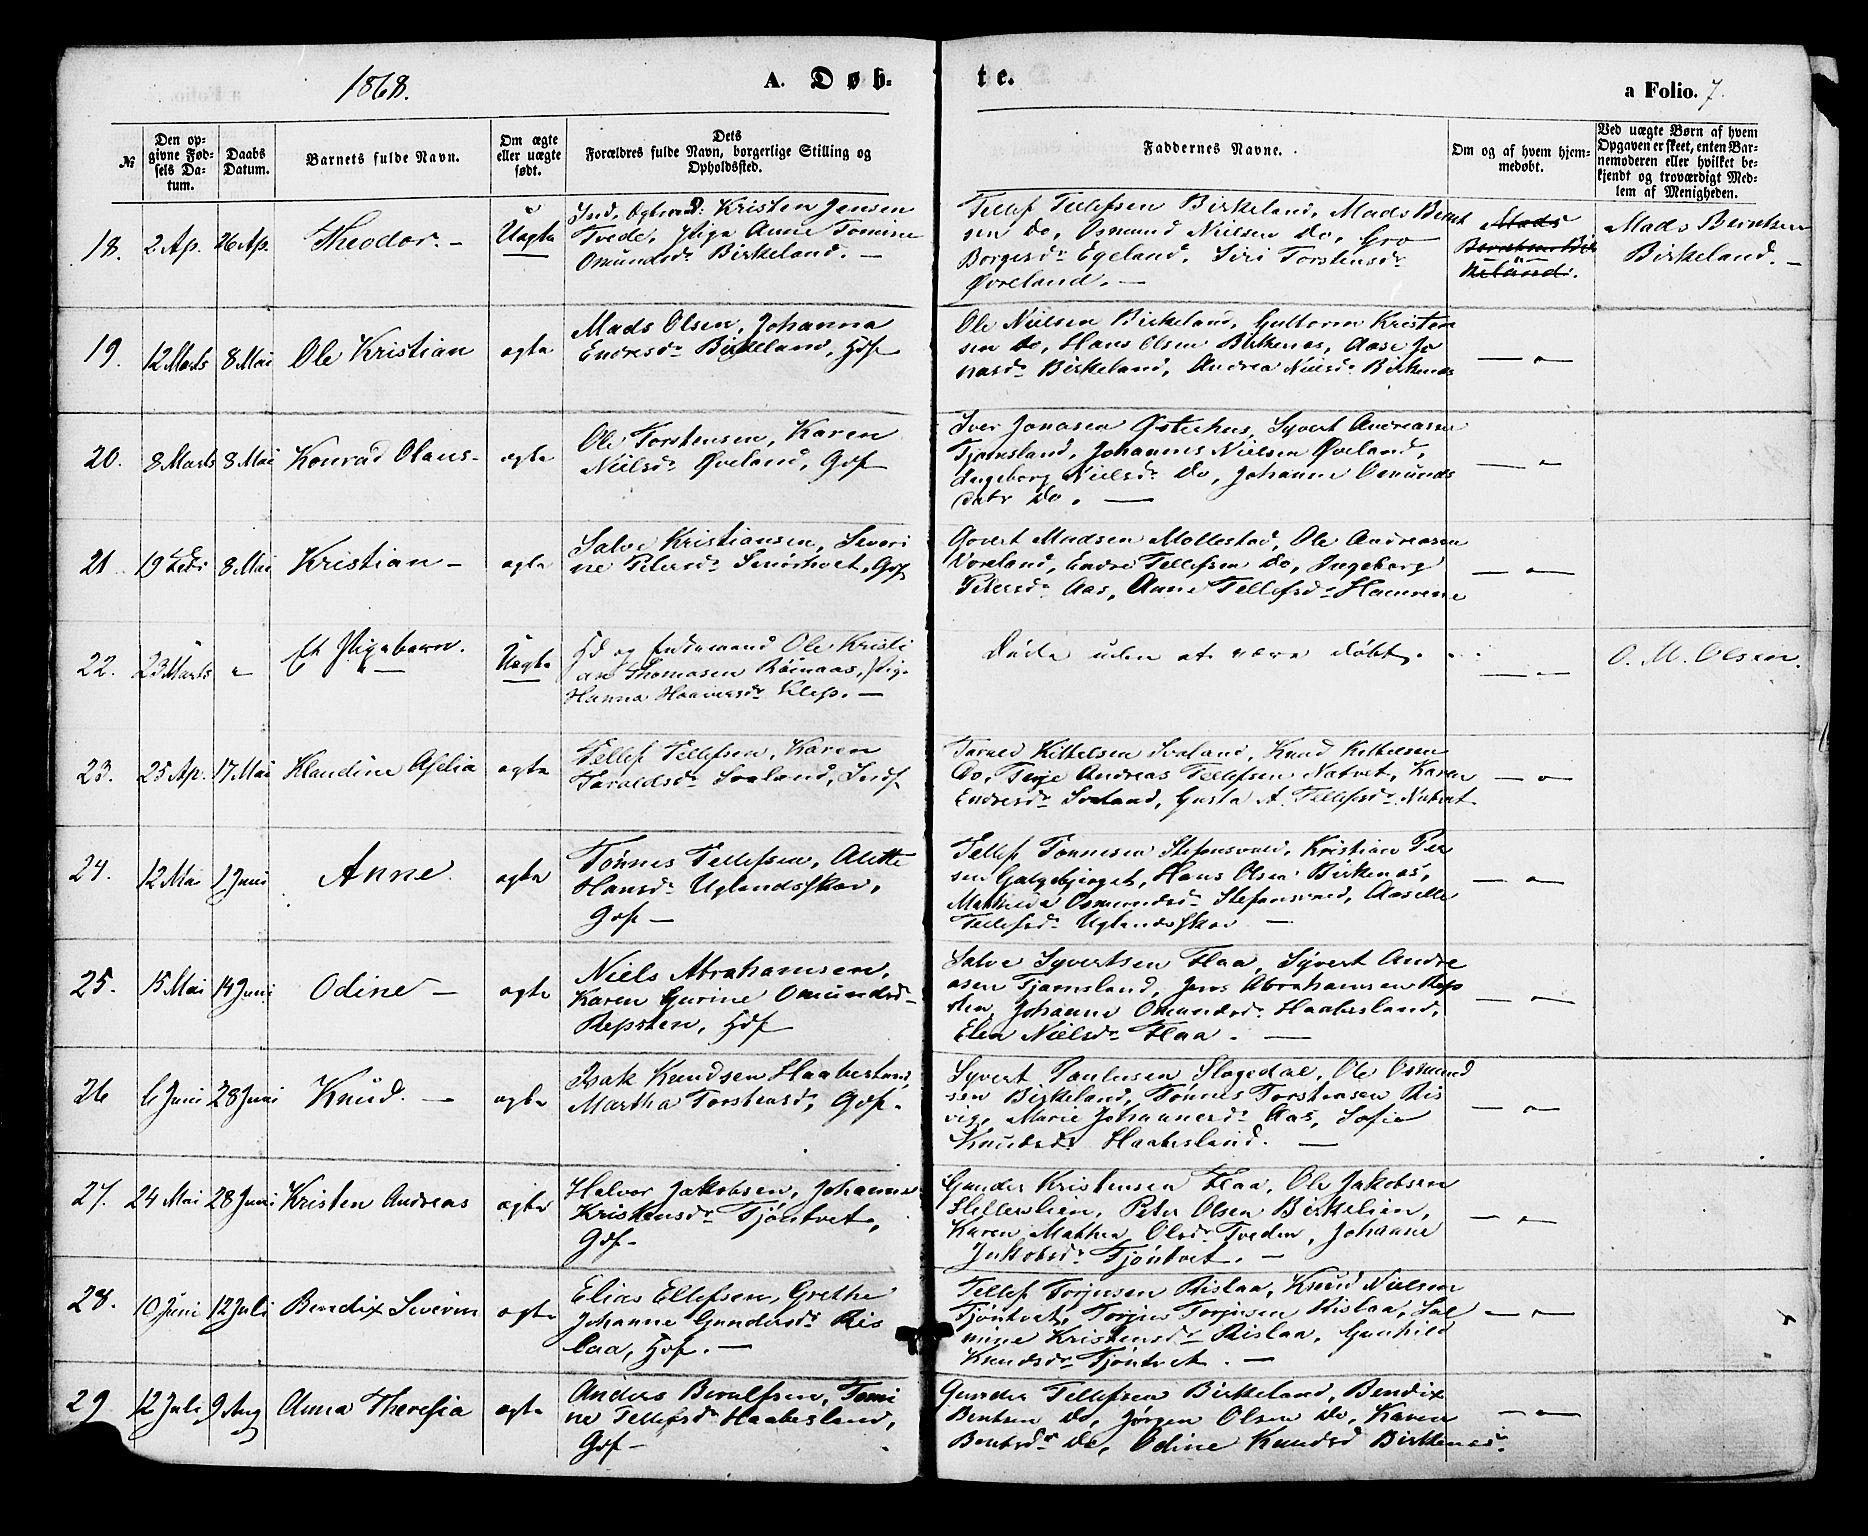 1868.
A. Døb-
te.
a Folio. 7.
№
Den op-
givne Fød-
sels Da-
tum.
Daabs
Datum.
Barnets fulde Navn.
Om ægte
eller uægte
født.
Dets
Forældres fulde Navn, borgerlige Stilling og
Opholdssted.
Faddernes Navne.
Om og af hvem hjem-
medøbt.
Ved uægte Børn af hvem
Opgaven er skeet, enten Bar-
nemoderen eller hvilket be-
kjendt og troværdigt Med-
lem af Menigheden.
18. 2 Ap. 26 Ap. Theodor. — Uægte
Kristen Jensen
Tvede, Pige Anne Tomine
Omundsdr Birkeland. —
Tellef Tellefsen Birkeland, Mads Bernt
sen do, Osmund Nielsen do, Gro
Borgersdr Egeland, Siri Torstensdr
Øveland. —
Mads
Berntsen Bir
keland.
Mads Berntsen
Birkeland. —
19. 12 Marts 8 Mai Ole Kristian ægte
Mads Olsen, Johanna
Endresdr Birkeland, Hdf
Ole Nielsen Birkeland, Guttorm Kristen
sen do, Hans Olsen Birkenes, Aase Jo
nasdr Birkeland, Andrea Nielsdr Birkenes
— " —
20. 8 Marts 8 Mai Konrad Olaus — ægte
Ole Torstensen, Karen
Nielsdr Øveland, Gdf
Iver Jonasen Østerhus, Syvert Andreasen
Tjomsland, Johannes Nielsen Øveland,
Ingeborg Nielsdr do, Johanne Osmunds
datr do. —
— " —
21 19 8 Mai Kristian — ægte
Salve Kristiansen, Severi
ne Petersdr Gdf
Govert Madsen Mollestad, Ole Andreasen
Endre Tellefsen do, Ingeborg
Petersdr Aas, Anne Tellefsdr
— " —
22. 23 Marts " Et Pigebarn. Uægte
Ole Kristi
an Thomasen Pige
Hanna Klep. —
Døde uden at være døbt.
— " —
O. M. Olsen.
23. 25 Ap. 17 Mai Klaudine Aselia ægte
Tellef Tellefsen, Karen
Taraldsdr Svaland, Indf
Tarald Kittelsen Svaland, Knud Kittelsen
do, Terje Andreas Tellefsen Natvet, Karen
Endresdr Svaland, Gusta A. Tellefsdr Natvet
— " —
24. 12 Mai 1 Juni Anne. ægte
Tønnes Tellefsen, Alette
Hansdr Uglandsskov,
Gdf —
Tellef Tønnesen Kristian Per
sen Galgebjerget, Hans Olsen Birkenes,
Mathilda Osmundsdr
Tellefsdr Uglandsskov —
— " —
25. 15 Mai 14 Juni Odine — ægte
Niels Abrahamsen,
Karen Gurine Omundsdr
Repsten, Hdf
Salve Syvertsen Flaa, Syvert Andre
asen Tjomsland, Jens Abrahamsen Rep
sten, Johanne Omundsdr Haabesland,
Elen Nielsdr Flaa. —
— " —
26 6 Juni 28 Juni Knud. — ægte
Isak Knudsen Haabesland,
Martha Torstensdr, Gdf.
Syvert Paulusen Slagedal, Ole Osmund
sen Birkeland, Tønnes Torstensen Ris
vig, Marie Johannesdr Aas, Sofie
Knudsdr Haabesland. —
— " —
27. 24 Mai 28 Juni Kristen Andreas ægte
Halvor Jakobsen, Johanne
Kristensdr Tjöntvet,
Gdf —
Gunder Kristensen Flaa, Ole Jakobsen
Hellerslien, Peter Olsen Birkelien,
Karen Mathea Olsdr Tveden, Johanne
Jakobsdr Tjöntvet. —
— " —
28. 10 Juni 12 Juli Bendix Severin ægte
Elias Ellefsen, Grethe
Johanne Gundersdr Ris
laa, Hdf. —
Tellef Torjusen Rislaa, Knud Nielsen
Tjöntvet, Torjus Torjusen Rislaa, Sal
mine Kristensdr Rislaa, Gunhild
Knudsdr Tjöntvet. —
— " —
29 12 Juli 9 Aug Anna Theresia ægte
Anders Tomi
ne Tellefsdr Haabesland,
Gdf —
Gunder Tellefsen Birkeland, Bendix
Bentsen do, Jørgen Olsen do, Karen
Bentsdr do, Odine Knudsd Birkenes.
— " —